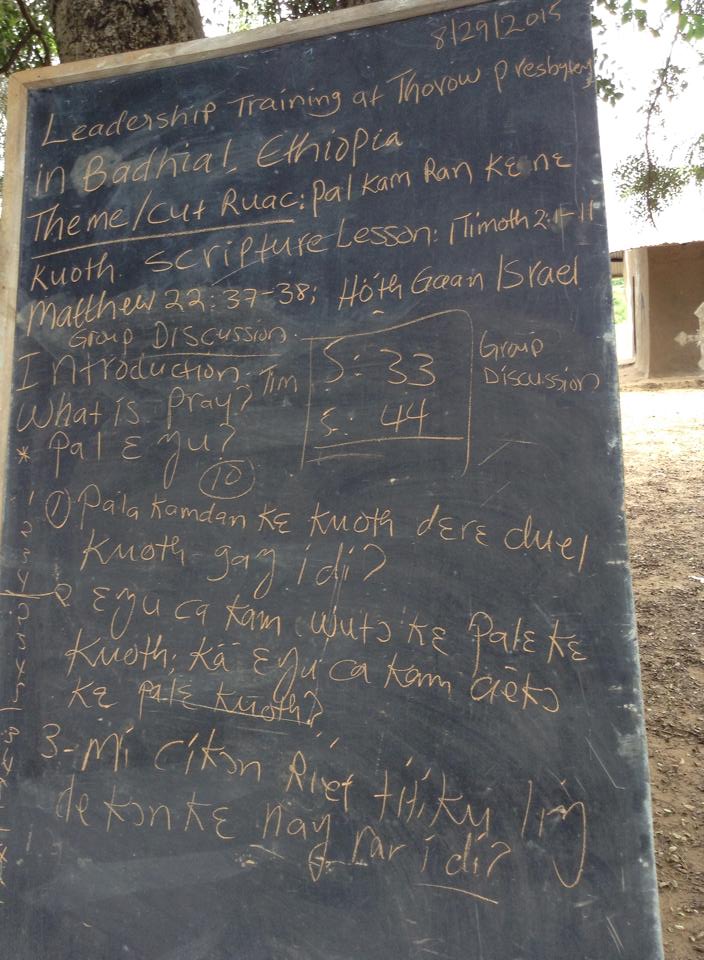 8/29/2015
Leadership Training at Thorow Presbytery
in Badhial, Ethiopia
Theme/Cut Ruac: pal kam Ran kɛ nɛ
Kuoth. Scripture Lesson: 1Timoth 2:1-11
Matthew 22:37-38; Hóth Gaan Israel
Group Discussion.
Introduction. Tim
S: 33
S: 44
Group
Discussion
What is Pray?
* Pal ɛ ŋu?
10
① Paila kamdan kɛ kuoth dɛrɛ duel
Kuoth gay i di?
2 ɛŋu ca kam wutɔ kɛ Palɛ kɛ
Kuoth; kä ɛŋu ca kam ciëkɔ
kɛ palɛ kuoth?
3- Mi cikɔn Riet titiky liŋ
de kɔn kɛ nay rar i di?